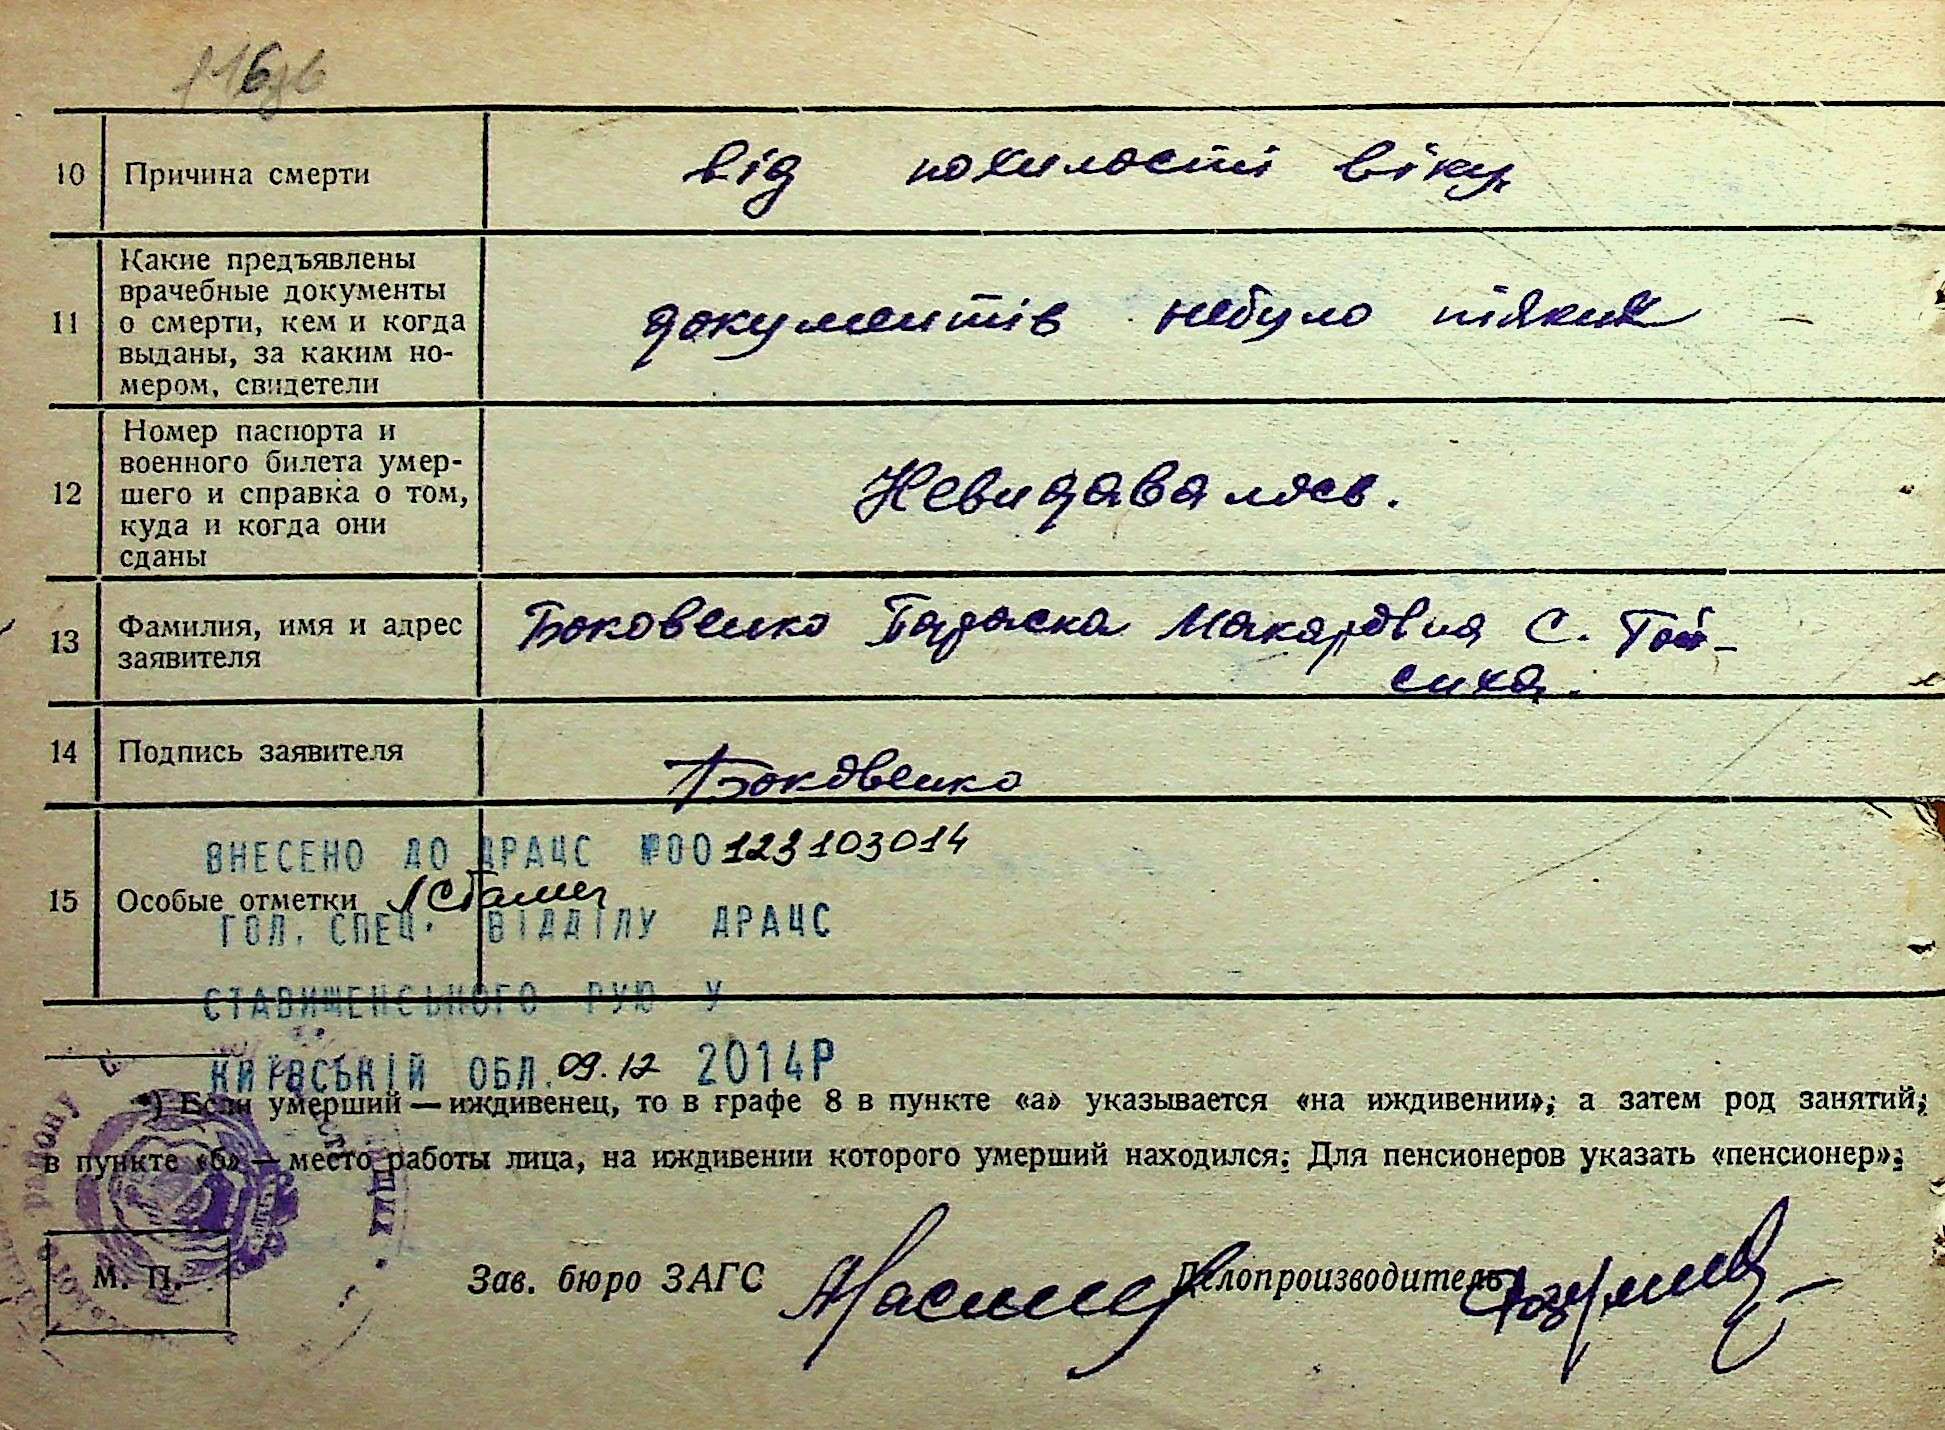 10 Причина смерти від похилості віку
11 Какие предъявлены
врачебные документы
о смерти, кем и когда
выданы, за каким но-
мером, свидетели
документів небуло ніяких
12 Номер паспорта и
военного билета умер-
шего и справка о том,
куда и когда они
сданы
Невидавалось.
13 Фамилия, имя и адрес
заявителя
Боковенко Параска Макаровна С. Гой-
сиха.
14 Подпись заявителя Боковенко
ВНЕСЕНО ДО ДРАЦС №00123103014
15 Особые отметки
ГОЛ. СПЕЦ. ВІДДІЛУ ДРАЦС
СТАВИЩЕНСЬКОГО РУЮ У
КИЇВСЬКІЙ ОБЛ. 09.12 2014Р
*) Если умерший — иждивенец, то в графе 8 в пункте «а» указывается «на иждивении»; а затем род занятий;
в пункте «б» — место работы лица, на иждивении которого умерший находился: Для пенсионеров указать «пенсионер»:
району
М. П. Зав. бюро ЗАГС Делопроизводитель